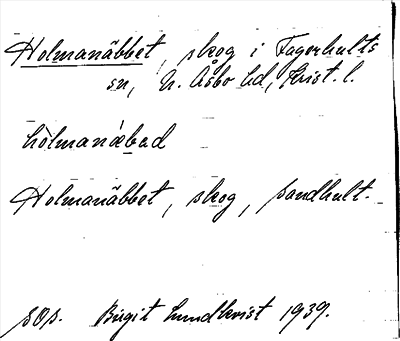 Holmanäbbet, skog i Fagerhults
sn, N. Åsbo hd, Krist. l.
hòlmanǽbad
Holmanäbbet, skog, Sandhult.
SOA. Birgit Lundkvist 1939.